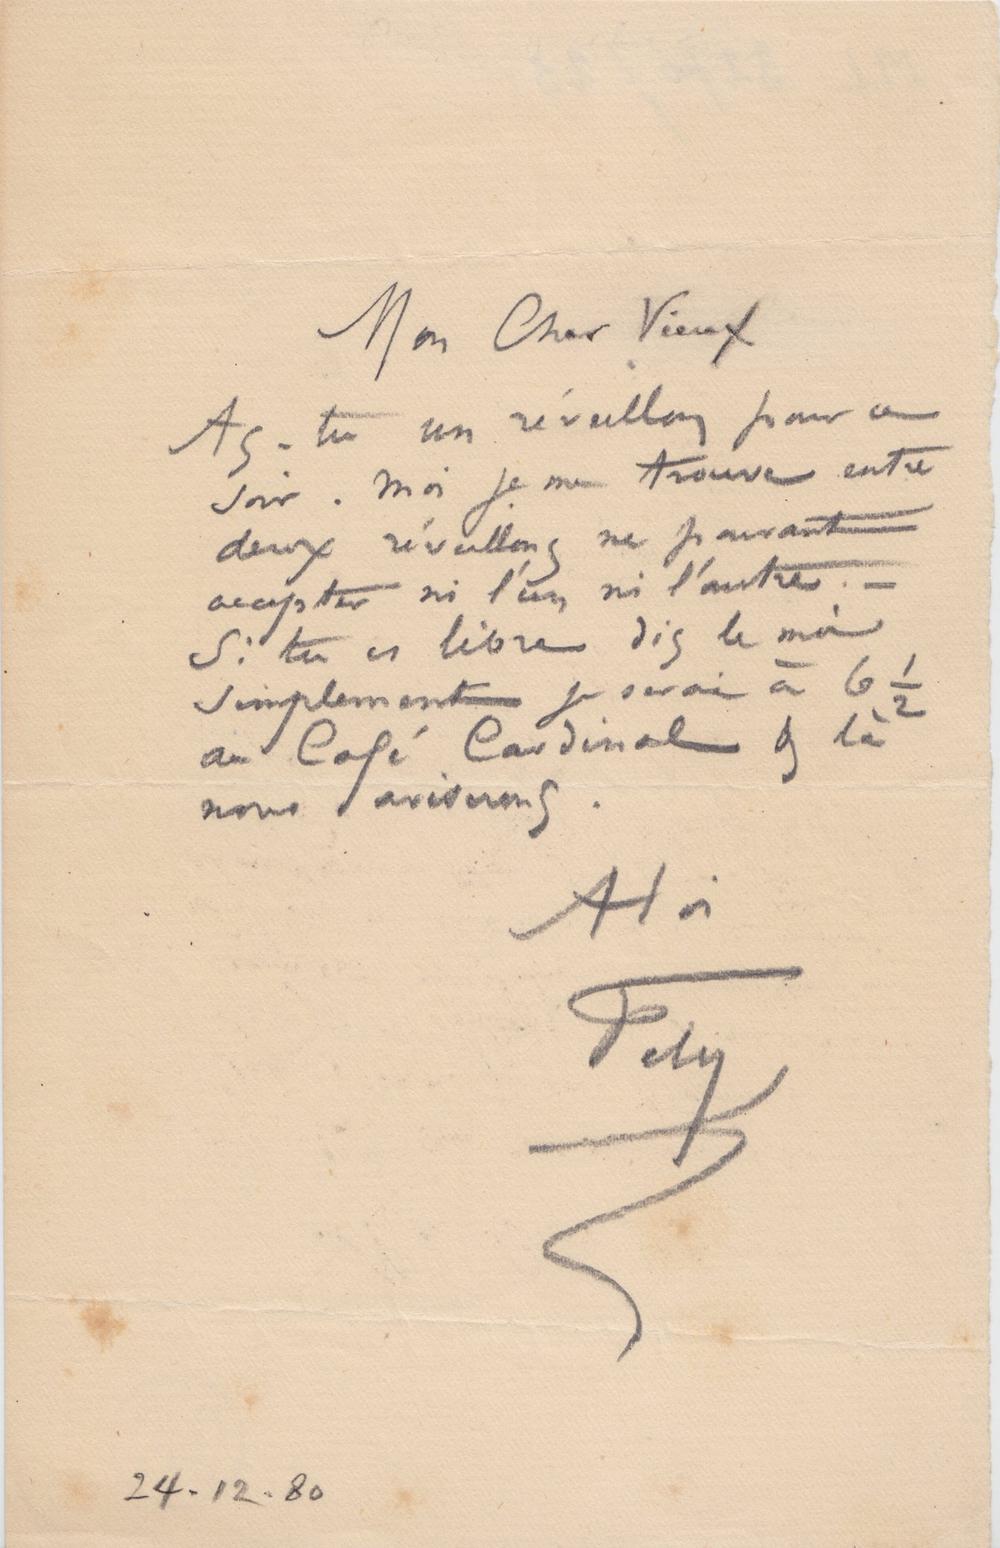 Mon Cher Vieux
As-tu un réveillon pour ce
soir. Moi je me trouve entre
deux réveillons ne pouvant
accepter ni l'un ni l'autre. –
Si tu es libre dis le moi
simplement je serai à 6 ½
au Café Cardinal & là
nous aviserons.
A toi
Fély
24-12-80